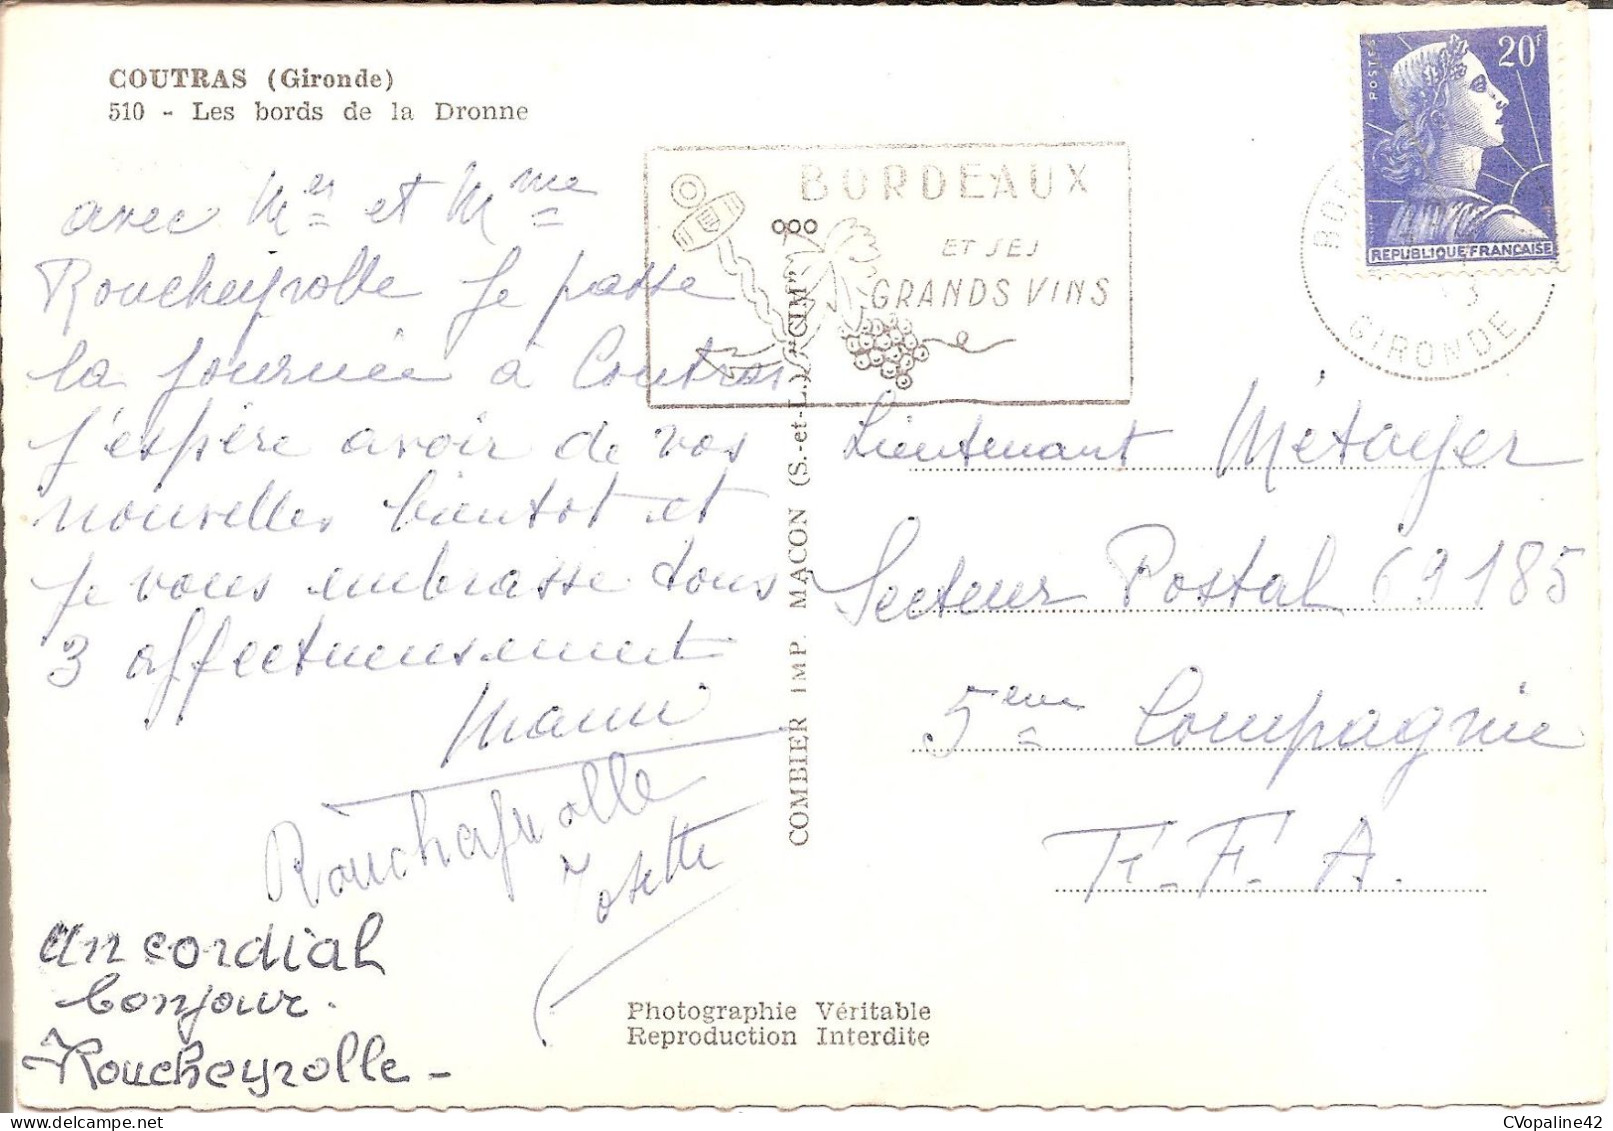 COUTRAS (Gironde)
510 - Les bords de la Dronne
avec Mr et Mme
Roucheyrolle je passe
la journée à Coutras
j'espère avoir de vos
nouvelles bientôt et
je vous embrasse tous
3 affectueusement
Mami
Roucheyrolle
Josette
Un cordial
bonjour.
Roucheyrolle -
BORDEAUX
ET SES
GRANDS VINS
COMBIER IMP. MACON (S.-et-L.) "CIM"
POSTES
20F
REPUBLIQUE FRANÇAISE
GIRONDE
Lieutenant Métayer
Secteur Postal 69185
5ème Compagnie
F. F. A.
Photographie Véritable
Reproduction Interdite
CVopaline42